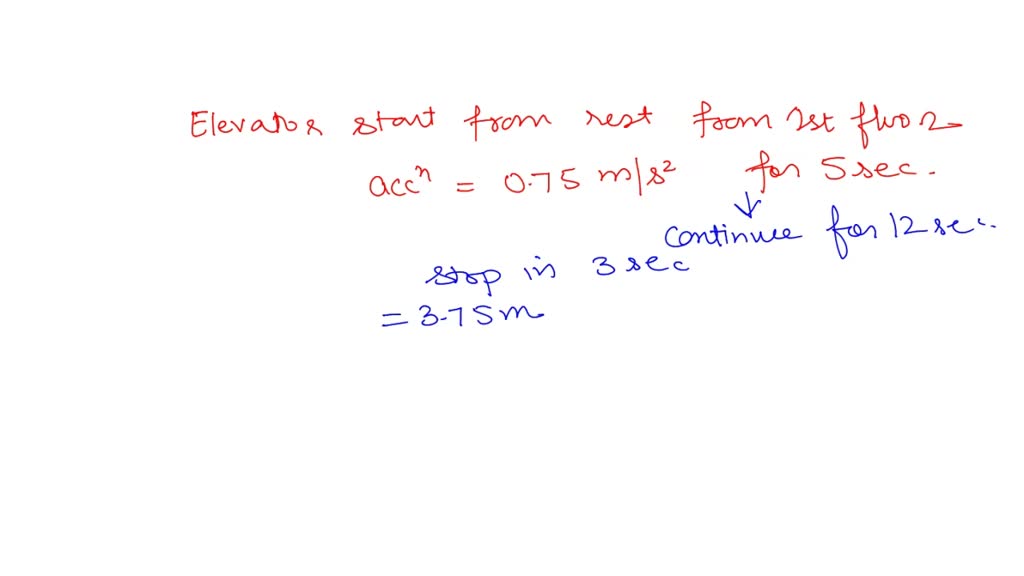 Elevator start from rest from 1st floor
accⁿ = 0.75 m/s² for 5 sec.
↓
continue for 12 sec.
stop in 3 sec
= 3.75 m